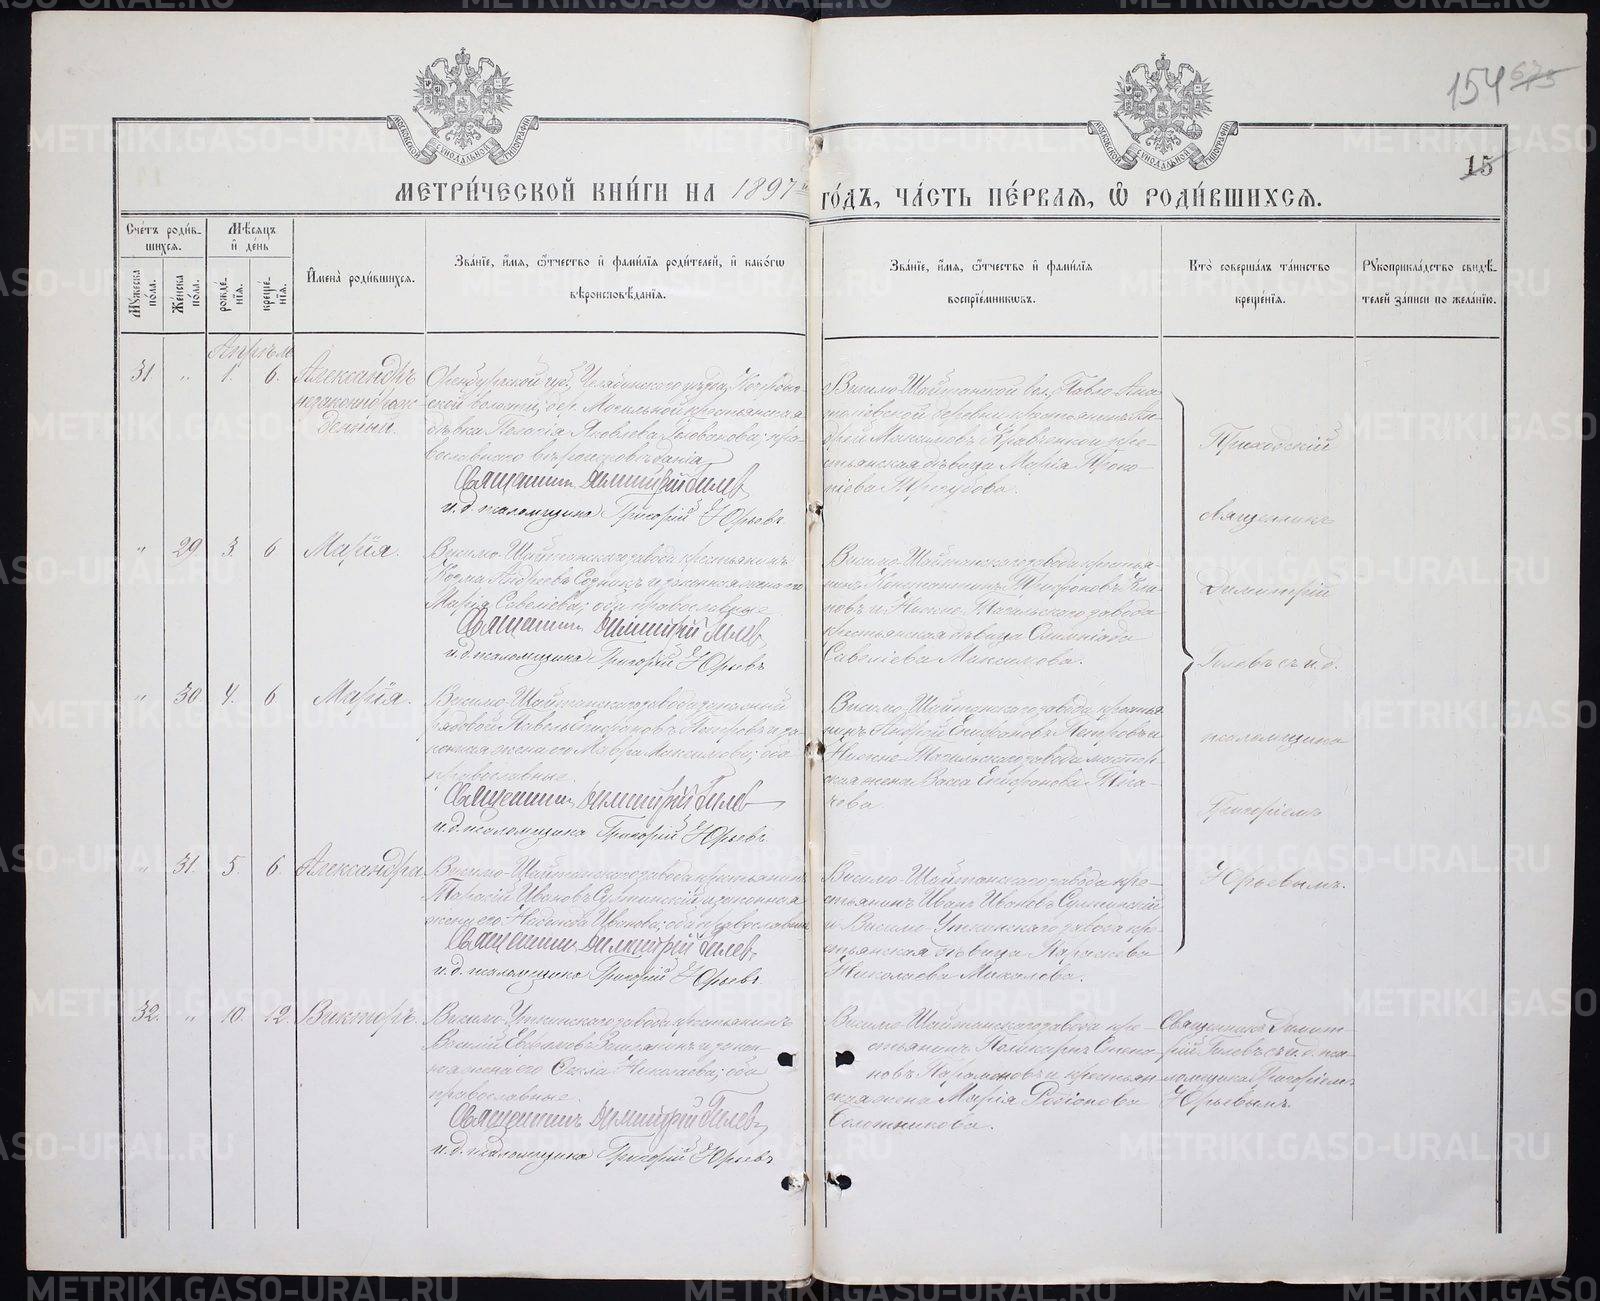 154 675
15
МОСКОВСКОЙ СѴНОДАЛЬНОЙ ТИПОГРАФІИ
МОСКОВСКОЙ СѴНОДАЛЬНОЙ ТИПОГРАФІИ
МЕТРИ́ЧЕСКОЙ КНИ́ГИ НА 1897 й ГО́ДЪ, ЧА́СТЬ ПЕ́РВАѦ, Ѿ РОДИ́ВШИХСѦ.
Сче́тъ роди́вшихсѧ.
Мꙋжеска по́ла.
Же́нска по́ла.
Мѣ́сѧцъ и҆ де́нь
рожде́нїѧ.
креще́нїѧ.
И҆мена̀ роди́вшихсѧ.
Зва́нїе, и҆́мѧ, ѻ҆́тчество и҆ фами́лїѧ роди́телей, и҆ како́гѡ
вѣроисповѣ́данїѧ.
Зва́нїе, и҆́мѧ, ѻ҆́тчество и҆ фами́лїѧ
воспрїе́мникѡвъ.
Кто̀ соверша́лъ та́инство
креще́нїѧ.
Рꙋкоприкла́дство свидѣ́-
телей за́писи по жела́нїю.
Апрѣль
31. " 1. 6. Александръ
незаконнорож-
денный.
Оренбургской губ., Челябинского уѣзда,
ской волости, дер. Могильной крестьянская
дѣвка Пелагія Яковлева Голованова; пра-
вославнаго вѣроисповѣданія
Священникъ Димитрій Гилев
и.д. псаломщика Григорій Юрьевъ
Висимо-Шайтанской вол., Павло-Ана-
тольевской деревни крестьянинъ Ан-
дрей Максимовъ Кравченко и кре-
стьянская дѣвица Марія Проко-
піева Трегубова.
Приходскій
священникъ
Димитрій
Гилевъ съ и.д.
псаломщика
Григоріемъ
Юрьевымъ.
" 29. 3. 6 Марія.
Висимо-Шайтанскаго завода крестьянинъ
Козма Андреевъ и законная жена его
Марія Савеліева; оба православные.
Священник Димитрій Гилев,
и.д. псаломщика Григорій Юрьевъ
Висимо-Шайтанскаго завода крестья-
нинъ Константинъ Трифоновъ
новъ и Нижне-Тагильскаго завода
крестьянская дѣвица Олимпіада
Савеліева Максимова.
" 30. 4. 6 Марія.
Висимо-Шайтанскаго завода запасный
рядовой Павелъ Епифановъ Петровъ и за-
конная жена его Мавра Максимова; оба
православные.
Священник Димитрій Гилев
и.д. псаломщика Григорій Юрьевъ
Висимо-Шайтанскаго завода крестья-
нинъ Андрей Епифановъ Петровъ и
Нижне-Тагильскаго завода мастер-
ская жена Васса Епифанова
" 31. 5. 6. Александра
Висимо-Шайтанскаго завода крестьянинъ
Тарасій Ивановъ Сулимскій и законная
жена его Надежда Иванова; оба православные
Священник Димитрій Гилев,
и.д. псаломщика Григорій Юрьевъ
Висимо-Шайтанскаго завода кре-
стьянинъ Иванъ Ивановъ Сулимскій
и Висимо-Уткинскаго завода кре-
стьянская дѣвица Параскева
Николаева Михалева.
32. " 10. 12. Викторъ.
Висимо-Уткинскаго завода крестьянинъ
Василій Евфимовъ и закон-
ная жена его Ѳекла Николаева; оба
православные.
Священникъ Димитрій Гилев,
и.д. псаломщика Григорій Юрьевъ
Висимо-Шайтанскаго завода кре-
стьянинъ Поликарпъ Степа-
новъ Парамоновъ и крестьян-
ская жена Марія Родіонова
Солотникова.
Священникъ Димит-
рій Гилевъ съ и.д. пса-
ломщика Григоріемъ
Юрьевымъ.
METRIKI.GASO-URAL.RU